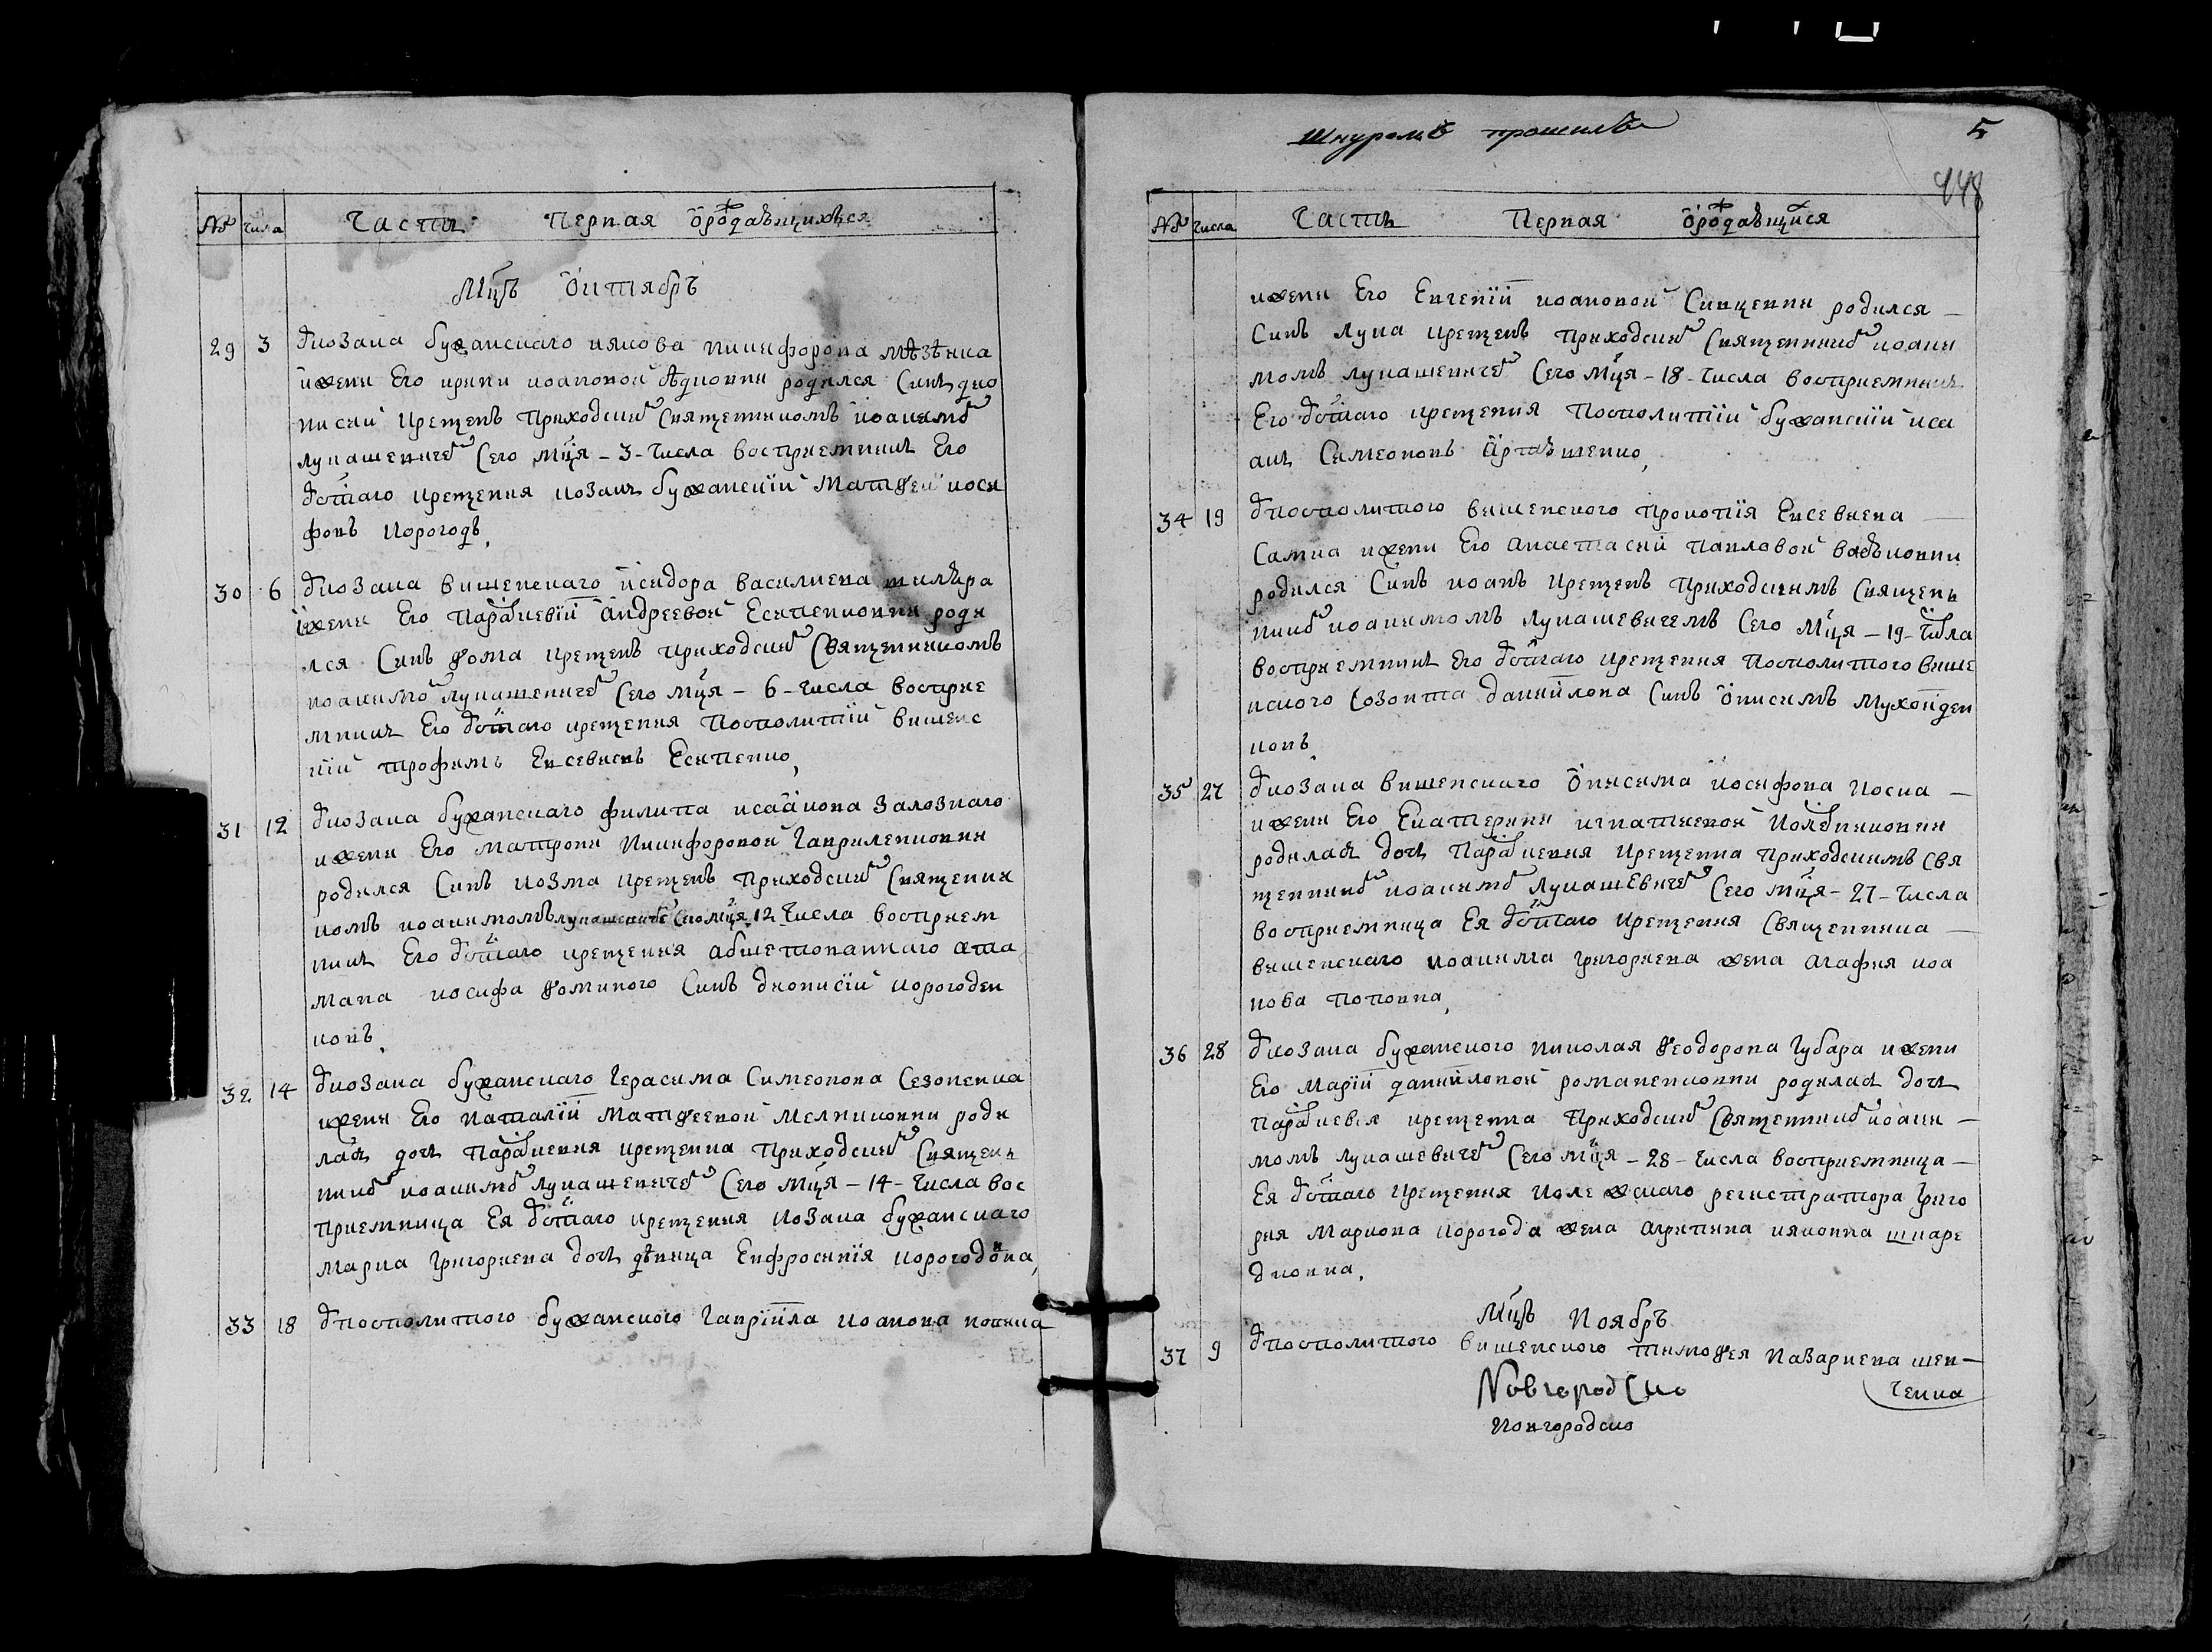 № числа Часть Первая ородившихся
Мцъ Октябръ
29 3 У козака бужанскаго иякова никифорова мѣзѣнка
и жени Его ирини иоановой Ядковни родился Синъ дио
нисий крещенъ приходским священникомъ иоакимом
лукашевичем Сего мця - 3 - числа восприемникъ Его
У стаго крещения козакъ бужанский Матфей иоси
фовъ корогодъ
30 6 У козака вишенскаго исидора василиева
и жени Его Параскевий Андреевой Есипенковни роди
лся Синъ фома крещенъ приходским Священникомъ
иоакимом лукашевичем Сего мця - 6 - числа восприе
мникъ Его У стаго крещения Посполитий вишенс
кий трофимъ Евсевиевъ Есипенко
31 12 У козака бужанскаго филипа исаакова Залознаго
и жени Его матрони Никифоровой Гавриленковни
родился Синъ козма крещенъ приходским Священни
комъ иоакимомъ лукашевичем Сего мця 12 числа восприем
никъ Его У стаго крещения абшетованнаго ата
мана иосифа фоминого Синъ дионисий корогоден
ковъ
32 14 У козака бужанскаго Герасима Симеонова Сезоненка
и жени Его Наталий Матфеевой Мелниковни роди
лась дочъ Параскевия крещенна приходским Священ
ником иоакимом лукашевичем Сего мця - 14 - числа вос
приемница Ея У стаго крещения козака бужанскаго
марка григориева дочъ дѣвица Евфросиния корогодовна
33 18 У посполитого бужанского гавриила иоанова
Шнуромъ прошилъ 5
448
№ числа Часть Первая ородившийся
и жени Его Евгений иоановой родился
Синъ лука крещенъ приходским Священником иоаки
момъ лукашевичем Сего мця - 18 - числа восприемникъ
Его У стаго крещения Посполитий бужанский иса
акъ Симеоновъ Артюшенко
34 19 У посполитого вишенского прокопия Евсевиева
Самка и жени Его анастасий павловой васковни
родился Синъ иоанъ крещенъ приходскимъ Священ
ником иоакимомъ лукашевичемъ Сего мця - 19 - числа
восприемникъ Его У стаго крещения посполитого више
нского Созонта данийлова Синъ онисимъ
ковъ
35 27 У козака вишенскаго онисима иосифова носка
и жени Его Екатерини игнатиевой
родилась дочъ Параскевия крещенна приходскимъ свя
щенником иоакимом лукашевичем Сего мця - 27 - числа
восприемница Ея У стаго крещения Священника
вишенскаго иоакима григориева жена агафия иоа
нова поповна
36 28 У козака бужанского николая феодорова губара и жени
Его Марий данийловой романенковни родилась дочъ
Параскевия крещенна приходским Священником иоаки
момъ лукашевичем Сего мця - 28 - числа восприемница
Ея У стаго крещения колежскаго регистратора григо
рия маркова корогода жена агрипина ияковна шкаре
дковна
Мцъ Ноябръ
37 9 У посполитого вишенского тимофея назариева шев
ченка
Новгородско
Новгородско